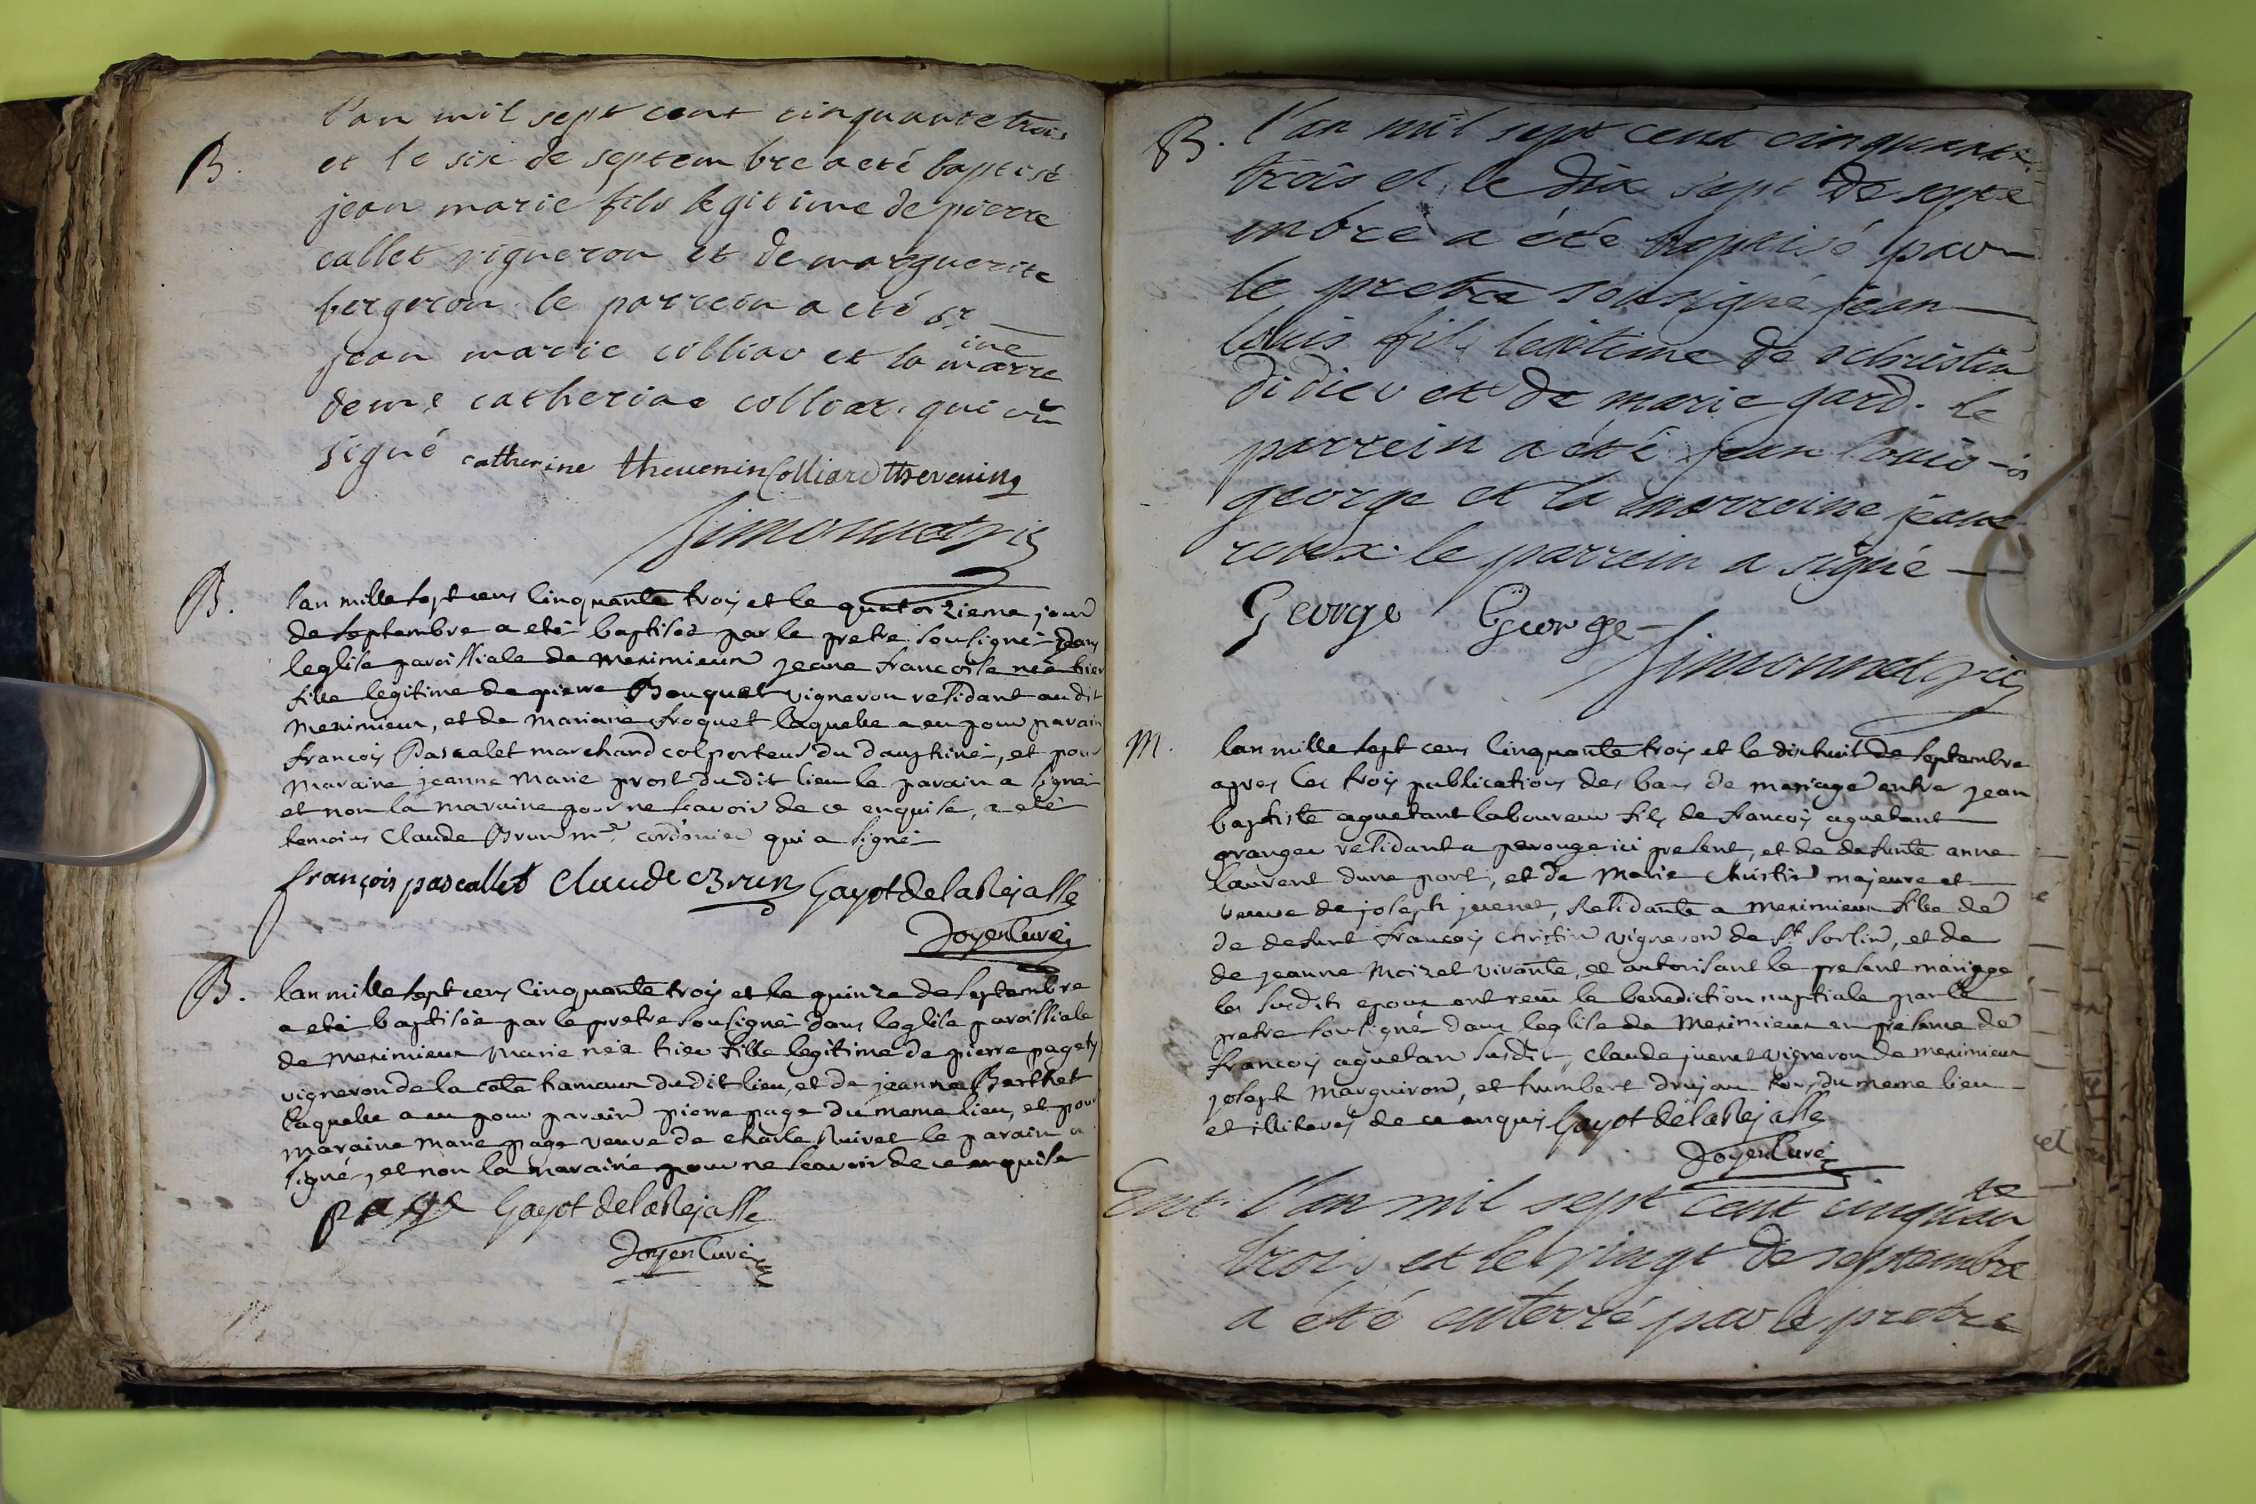 l'an mil sept cent cinquante trois
B. et le six de septembre a eté baptisé
jean marie fils legitime de pierre
callet vigneron et de marguerite
bergeron le parrein a eté sr
jean marie colliar et la marre
ine
demle catherine colliar qui on
signé catherine thevenin Colliard thevening
Simonnet pre
B. lan mille sept cens cinquante trois et le quatorzieme jour
de septembre a eté baptisée par le pretre sousigné dans
leglise paroissiale de meximieux jeane francoise née hier
fille legitime de pierre Bouquet vigneron residant au dit
meximieux, et de mariane froquet laquelle a eu pour parain
francois Pascalet marchand colporteur du dauphiné, et pour
maraine jeanne marie prost du dit lieu le parain a signé
et non la maraine pour ne scavoir de ce enquise, a eté
temoins Claude Brun me cordonier qui a signé
françois pascallet Claude Brun Gayot de la Rejasse
Doyen Curé
B. lan mille sept cens cinquante trois et le quinze de septembre
a eté baptisée par le pretre sousigné dans leglise paroissiale
de meximieux marie née hier fille legitime de pierre page
vigneron de la cote hameau du dit lieu, et de jeanne Berthet
laquelle a eu pour parain pierre page du meme lieu, et pour
maraine marie page veuve de charle Ruivet le parain a
signé, et non la maraine pour ne scavoir de ce enquise
page Gayot de la Rejasse
Doyen Curé
B. l'an mil sept cent cinquante
trois et le dix sept de septe
mbre a été baptisé par
le pretre sousigné jean
louis fils lexitime de christin
didieu et de marie gard. le
parrein a été jean louis
george et la marreine jeane
revex le parrein a signé
George George
Simonnet pre
M. lan mille sept cens cinquante trois et le dix huit de septembre
apres les trois publications des bans de mariage entre jean
baptiste aguetant laboureur fils de francois aguetant
granger residant a perouge ici present, et de defunte anne
laurent dune part, et de Marie Christin majeure et
veuve de joseph juenet, Residante a meximieux fille de
de defunt francois christin vigneron de St sorlin, et de
de jeanne Moizet vivante, et autorisant le present mariage
les susdits epoux ont reçu la benediction nuptiale par le
pretre sousigné dans leglise de Meximieux en presence de
francois aguetan susdit, claude juenet vigneron de meximieux
joseph Marguiron, et humbert drujon tous du meme lieu
et illiterés de ce enquis Gayot de la Rejasse
Doyen Curé
Ent. l'an mil sept cent cinquan
te
trois et le vingt de septembre
a été enterré par le pretre